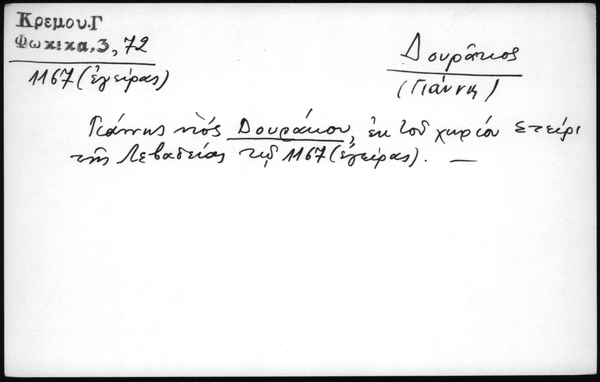 Κρεμου.Γ
Φωκικα,3,72
1167 (ἐγείρας)
Δουράκος
(Γιάννη)
Γιάννης υἱός Δουράκου, ἐκ τοῦ χωρίου Στείρι
τῆς Λεβαδείας τῷ 1167 (ἐγείρας). —